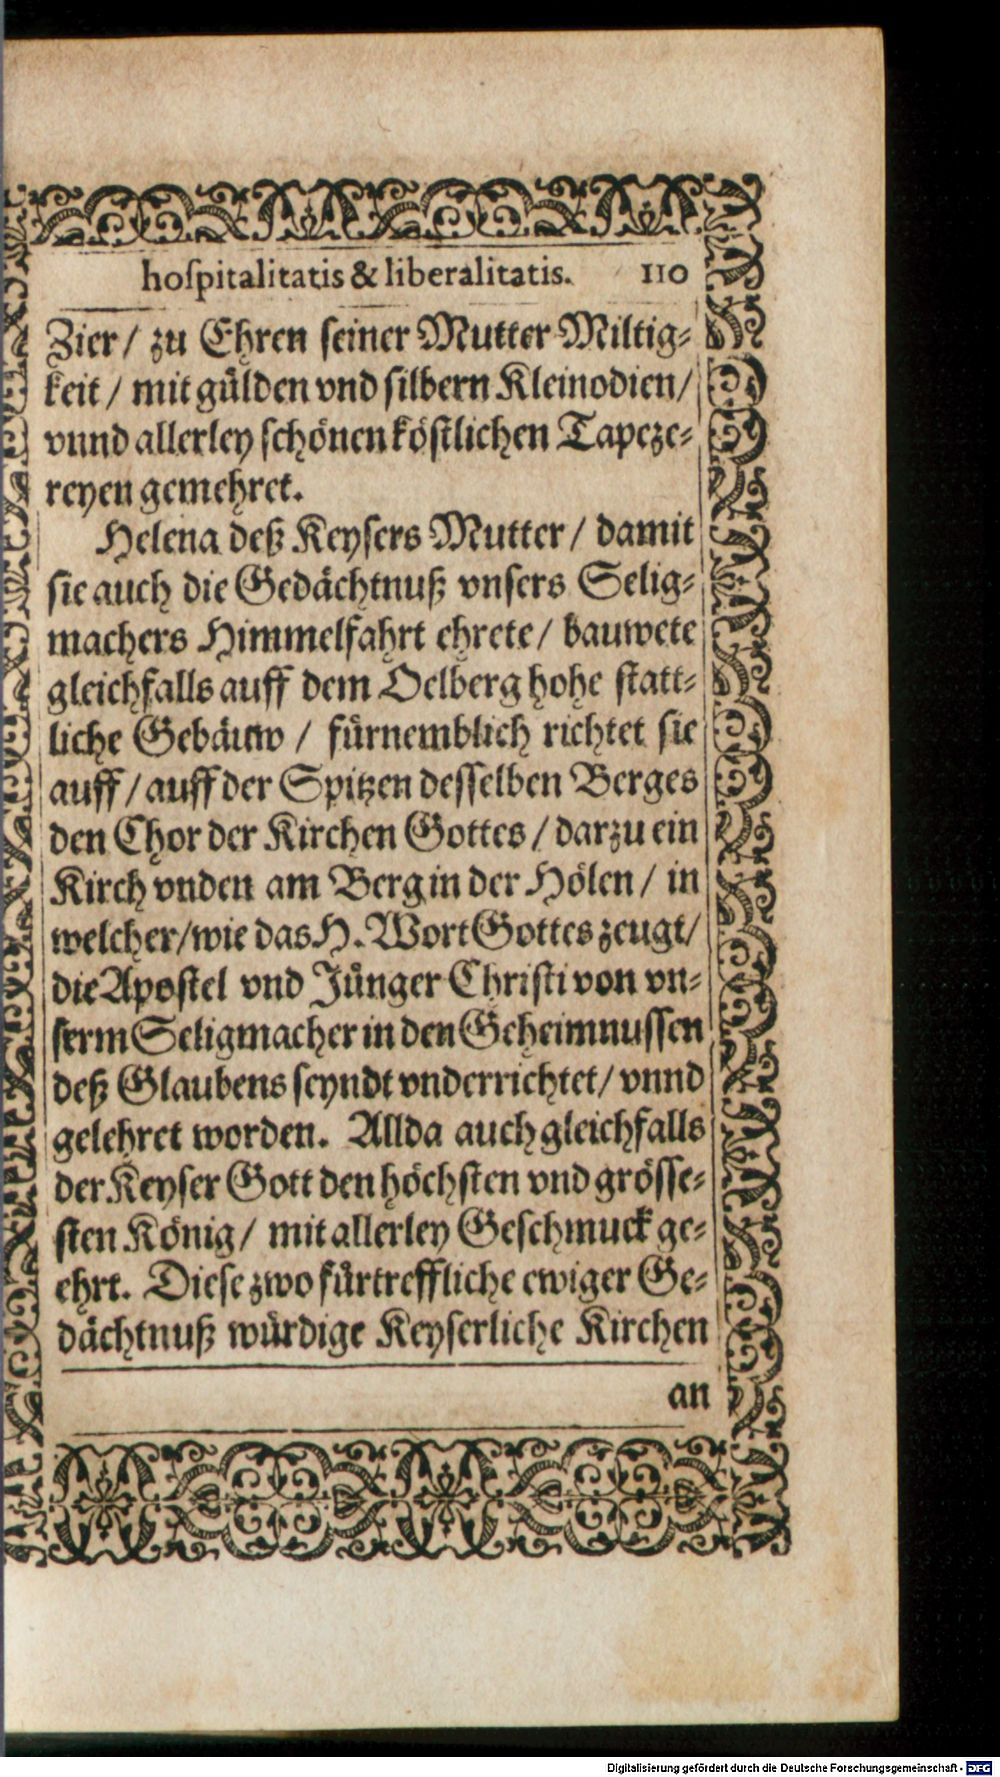 hoſpitalitatis & liberalitatis. 110
Zier / zu Ehren ſeiner Mutter Miltig⸗
keit / mit gülden vnd ſilbern Kleinodien /
vnnd allerley ſchönen köſtlichen Tapeze⸗
reyen gemehret.
Helena deß Keyſers Mutter / damit
ſie auch die Gedächtnuß vnſers Selig⸗
machers Himmelfahrt ehrete / bauwete
gleichfalls auff dem Oelberg hohe ſtatt⸗
liche Gebäuw / fürnemblich richtet ſie
auff / auff der Spitzen deſſelben Berges
den Chor der Kirchen Gottes / darzu ein
Kirch vnden am Berg in der Hölen / in
welcher / wie das H. Wort Gottes zeugt /
die Apoſtel vnd Jünger Chriſti von vn⸗
ſerm Seligmacher in den Geheimnuſſen
deß Glaubens ſeyndt vnderrichtet / vnnd
gelehret worden. Allda auch gleichfalls
der Keyſer Gott den höchſten vnd gröſſe⸗
ſten König / mit allerley Geſchmuck ge⸗
ehrt. Dieſe zwo fürtreffliche ewiger Ge⸗
dächtnuß würdige Keyſerliche Kirchen
an
Digitalisierung gefördert durch die Deutsche Forschungsgemeinschaft - DFG